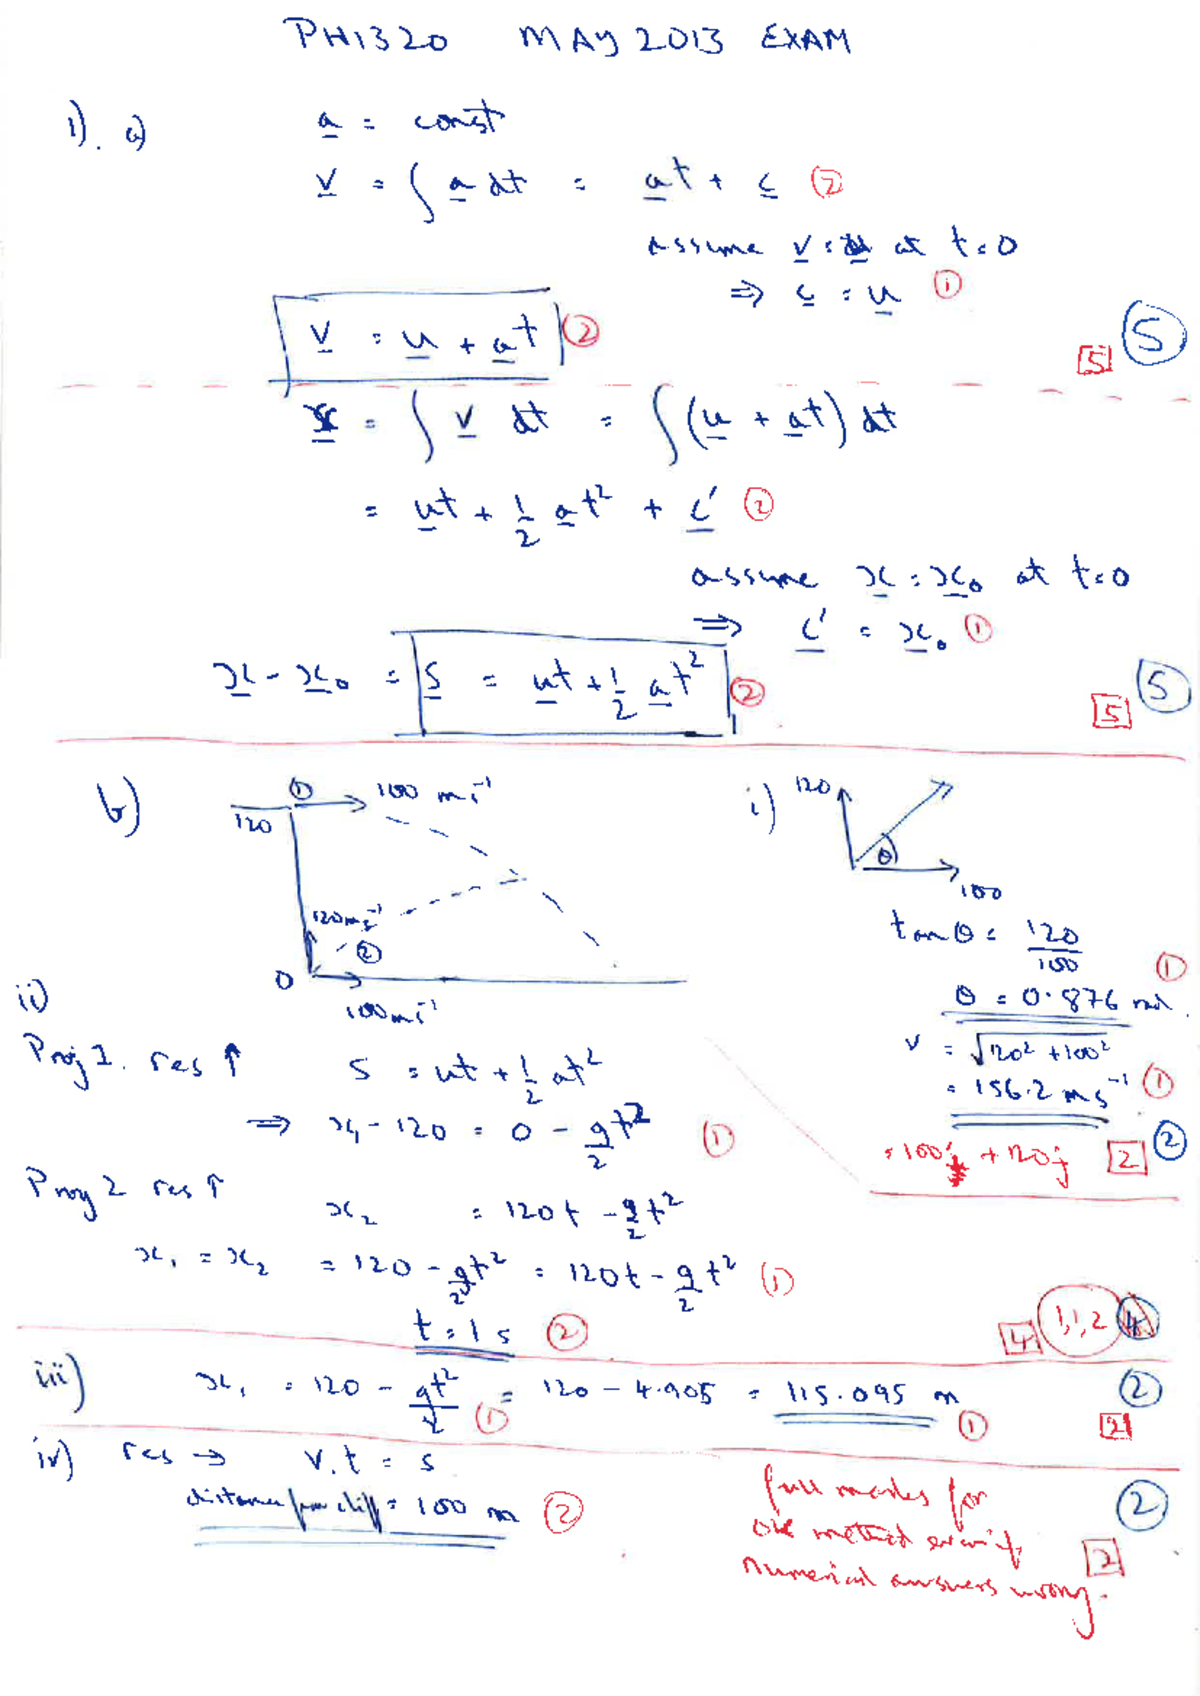 PH1320 MAY 2013 EXAM
1). a) a = const
v = ∫ a dt = at + c ②
assume v = u at t=0
⇒ c = u ①
v = u + at ② 5 5
x = ∫ v dt = ∫ (u + at) dt
= ut + 1/2 at² + c' ②
assume x = x₀ at t=0
⇒ c' = x₀ ①
x - x₀ = s = ut + 1/2 at² ② 5 5
b) ① 100 ms⁻¹ i) 120
120 θ
100
120ms⁻¹ tanθ = 120/100 ①
②
0 θ = 0.876 rad.
100ms⁻¹
ii) v = √120² + 100²
Proj 1. res ↑ s = ut + 1/2 at² = 156.2 ms⁻¹ ①
⇒ x₁ - 120 = 0 - g/2 t² ① = 100i + 120j 2 2
Proj 2 res ↑ x₂ = 120t - g/2 t²
x₁ = x₂ = 120 - g/2 t² = 120t - g/2 t² ①
t = 1 s ② 4 1,1,2 4
iii) x₁ = 120 - gt²/2 ① = 120 - 4.905 = 115.095 m ① 2 2
iv) res → v.t = s
distance from cliff = 100 m ② 2 2
full marks for
ok method even if
numerical answers wrong.